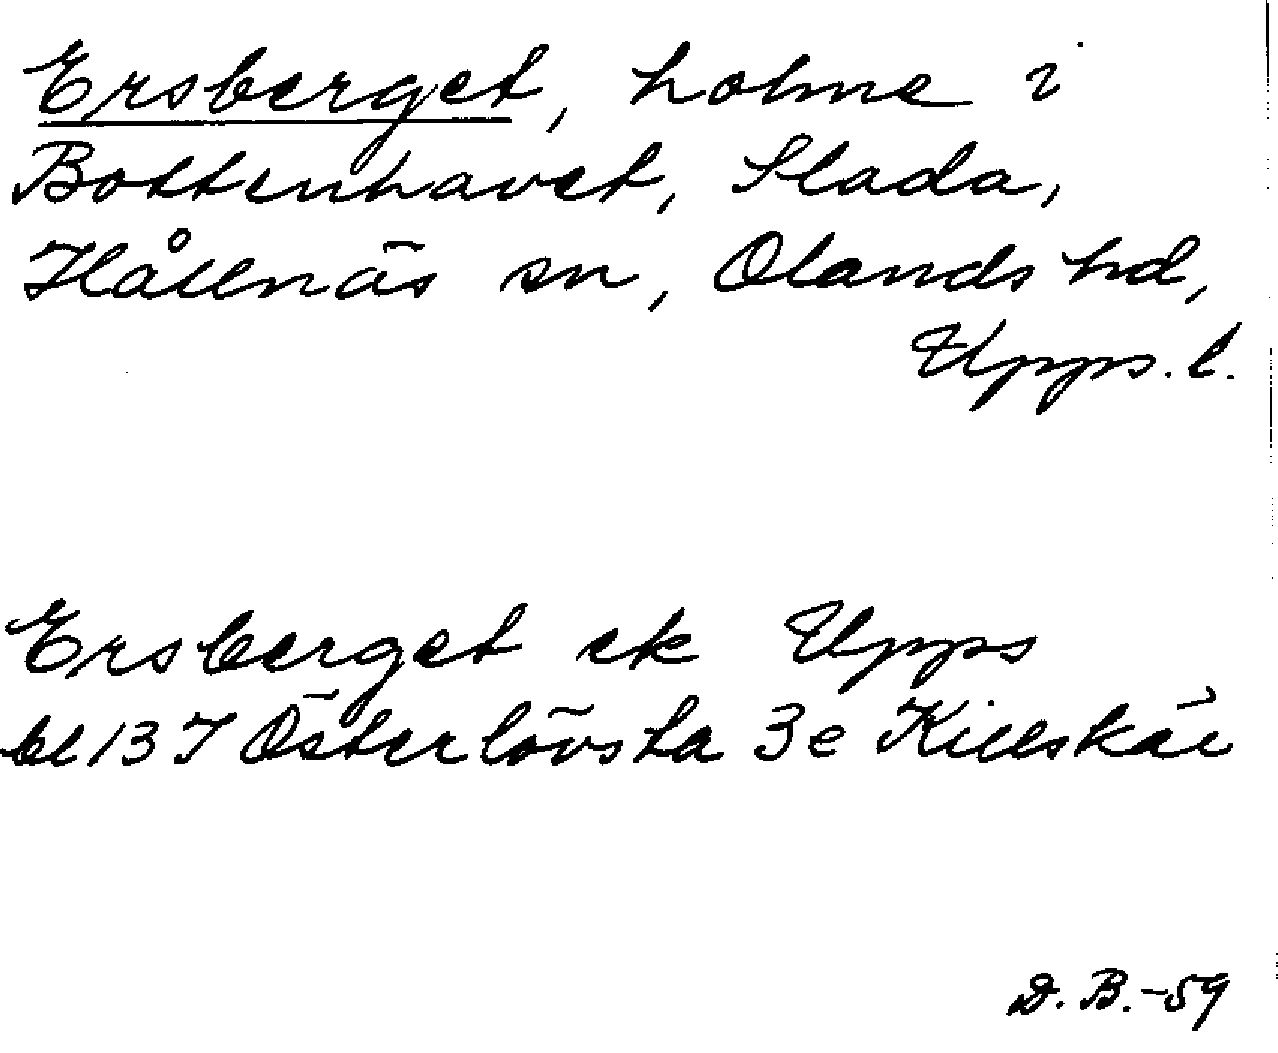 Ersberget, holme i
Bottenhavet, Slada,
Hållnäs sn, Olands hd,
Upps. l.
Ersberget ek Upps
bl 13 I Österlövsta 3e Killskär
D. B. -59